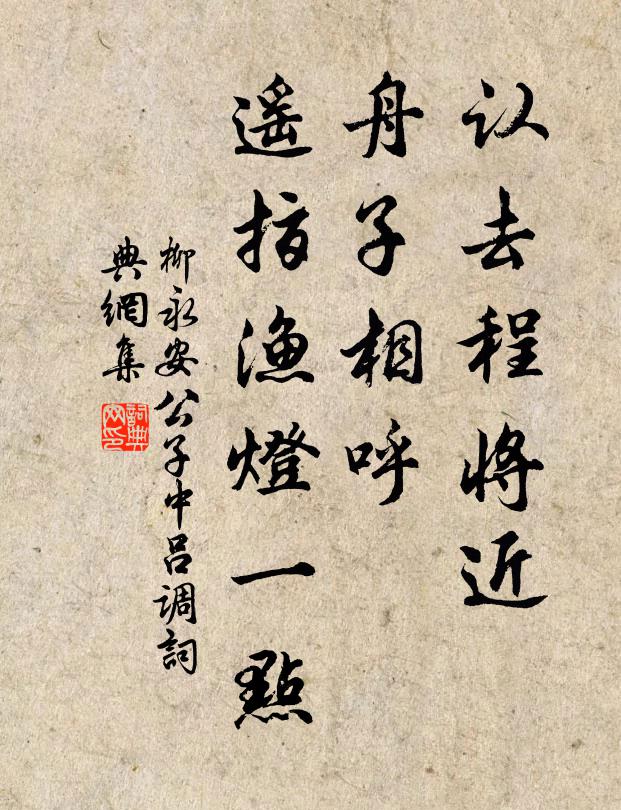 认去程将近
舟子相呼
遥指渔燈一點
柳永安公子中吕调詞
典網集
詞典网印